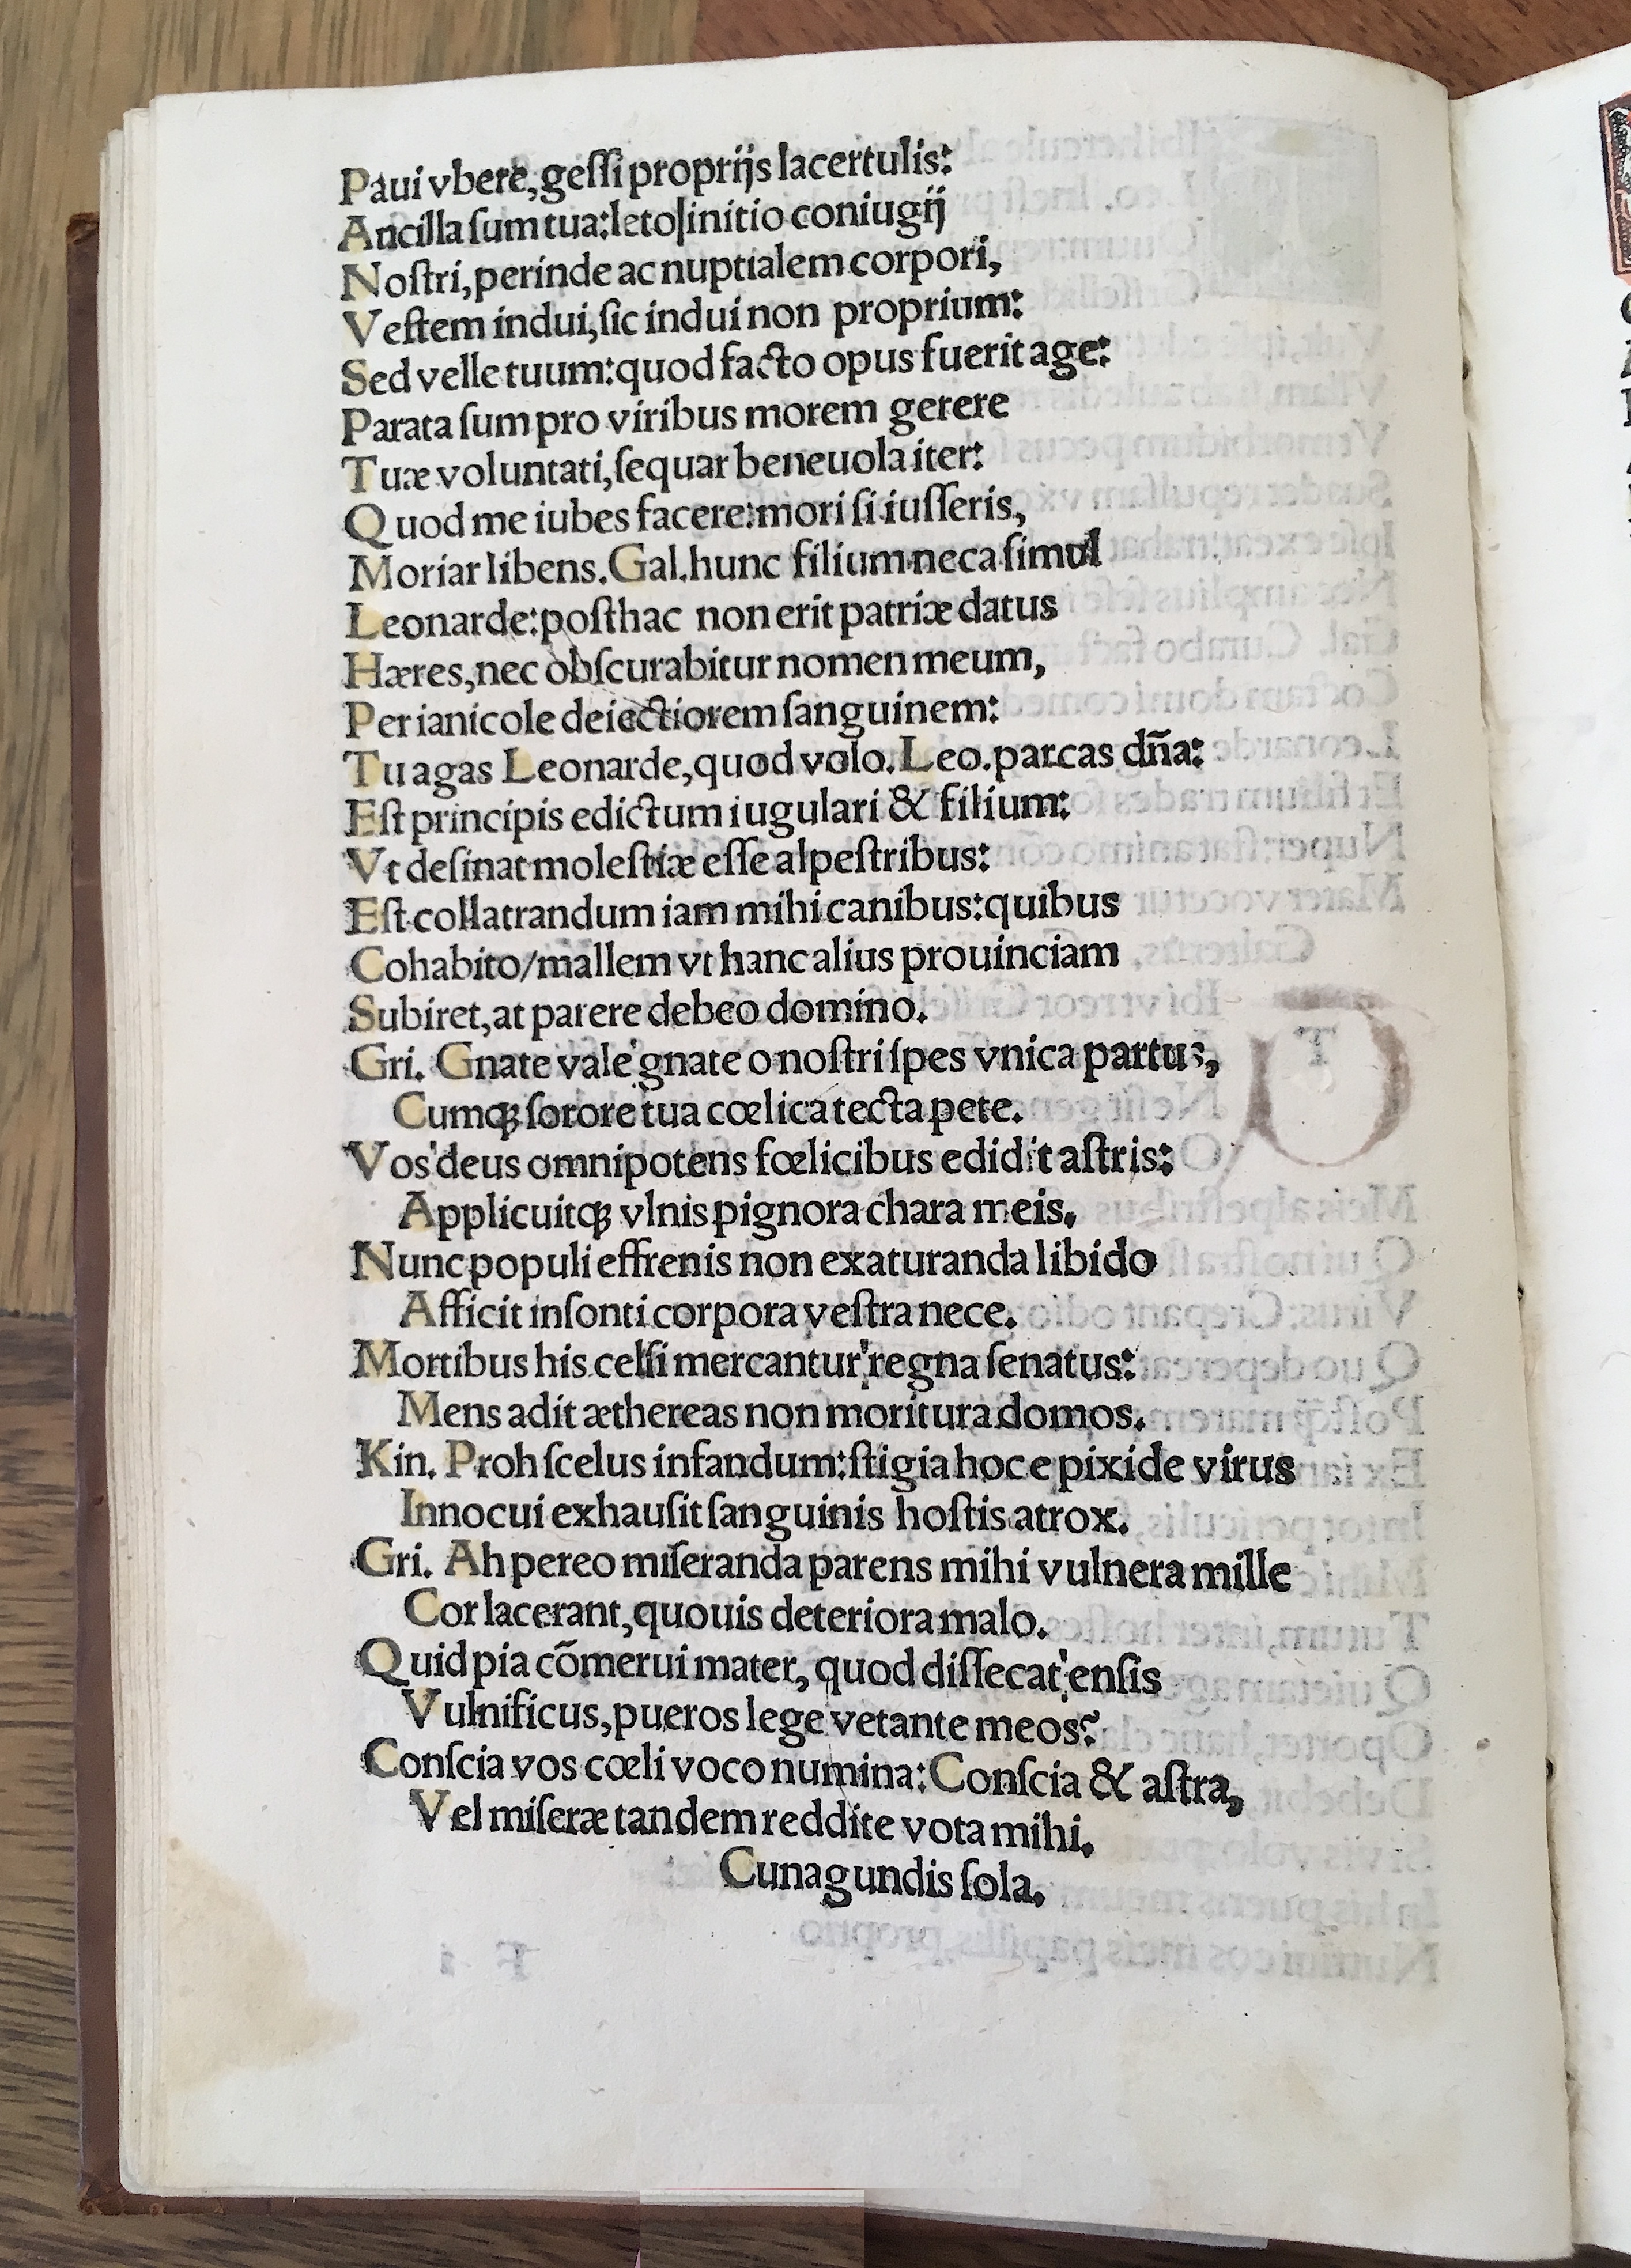 Paui vbere, geſſi proprijs lacertulis:
Ancilla ſum tua: leto initio coniugij
Noſtri, perinde ac nuptialem corpori,
Veſtem indui, ſic indui non proprium:
Sed velle tuum: quod facto opus fuerit age:
Parata ſum pro viribus morem gerere
Tuæ voluntati, ſequar beneuola iter:
Quod me iubes facere: mori ſi iuſſeris,
Moriar libens. Gal. hunc filium neca ſimul
Leonarde: poſthac non erit patriæ datus
Hæres, nec obſcurabitur nomen meum,
Per ianicole deiectiorem ſanguinem:
Tu agas Leonarde, quod volo. Leo. parcas dn̄a:
Eſt principis edictum iugulari & filium:
Vt deſinat moleſtiæ eſſe alpeſtribus:
Eſt collatrandum iam mihi canibus: quibus
Cohabito/mallem vt hanc alius prouinciam
Subiret, at parere debeo domino.
Gri. Gnate vale gnate o noſtri ſpes vnica partus,
Cumqꝫ ſorore tua cœlica tecta pete.
Vos deus omnipotens fœlicibus edidit aſtris:
Applicuitqꝫ vlnis pignora chara meis.
Nunc populi effrenis non exaturanda libido
Afficit inſonti corpora veſtra nece.
Mortibus his celſi mercantur regna ſenatus:
Mens adit æthereas non moritura domos.
Kin. Proh ſcelus infandum: ſtigia hoc e pixide virus
Innocui exhauſit ſanguinis hoſtis atrox.
Gri. Ah pereo miſeranda parens mihi vulnera mille
Cor lacerant, quouis deteriora malo.
Quid pia cōmerui mater, quod diſſecat enſis
Vulnificus, pueros lege vetante meos?
Conſcia vos cœli voco numina: Conſcia & aſtra,
Vel miſeræ tandem reddite vota mihi.
Cunagundis ſola.